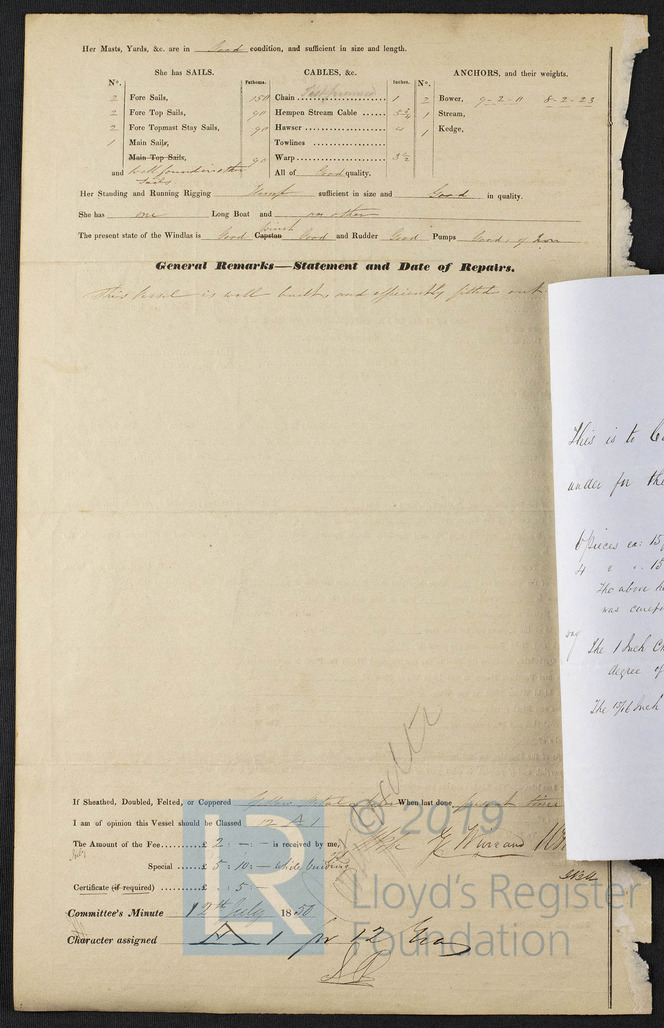 Her Masts, Yards, &c. are in Good condition, and sufficient in size and length.
She has SAILS.
CABLES, &c.
ANCHORS, and their weights.
N°.
Fathoms.
Inches.
N°.
2 Fore Sails,
150 Chain Test proved 1
2 Bower, 9-2-11 8-2-23
2 Fore Top Sails,
90 Hempen Stream Cable 5¾
1 Stream,
2 Fore Topmast Stay Sails,
90 Hawser 4
1 Kedge,
1 Main Sails,
Towlines
Main Top Sails,
90 Warp 3½
and Well found in other Sails
All of Good quality.
Her Standing and Running Rigging Hemp sufficient in size and Good in quality.
She has one Long Boat and no other
The present state of the Windlas is Good Capstan Winch Good and Rudder Good Pumps Good, of Iron
General Remarks—Statement and Date of Repairs.
This Vessel is well built, and efficiently fitted out
This is to
under for the
6 Pieces ea: 15
4 " " 15
The above
was
The 1 Inch
degree of
The 15/16 Inch
If Sheathed, Doubled, Felted, or Coppered Yellow Metal When last done present time
I am of opinion this Vessel should be Classed 12 A 1
The Amount of the Fee £ 2 : - : - is received by me,
Special £ 5 : 10 : - while building
Certificate (if required) £ : 5 : -
Committee's Minute 12th July 1850
Character assigned A 1 for 12 Yrs
© 2019
LR
Lloyd's Register
Foundation